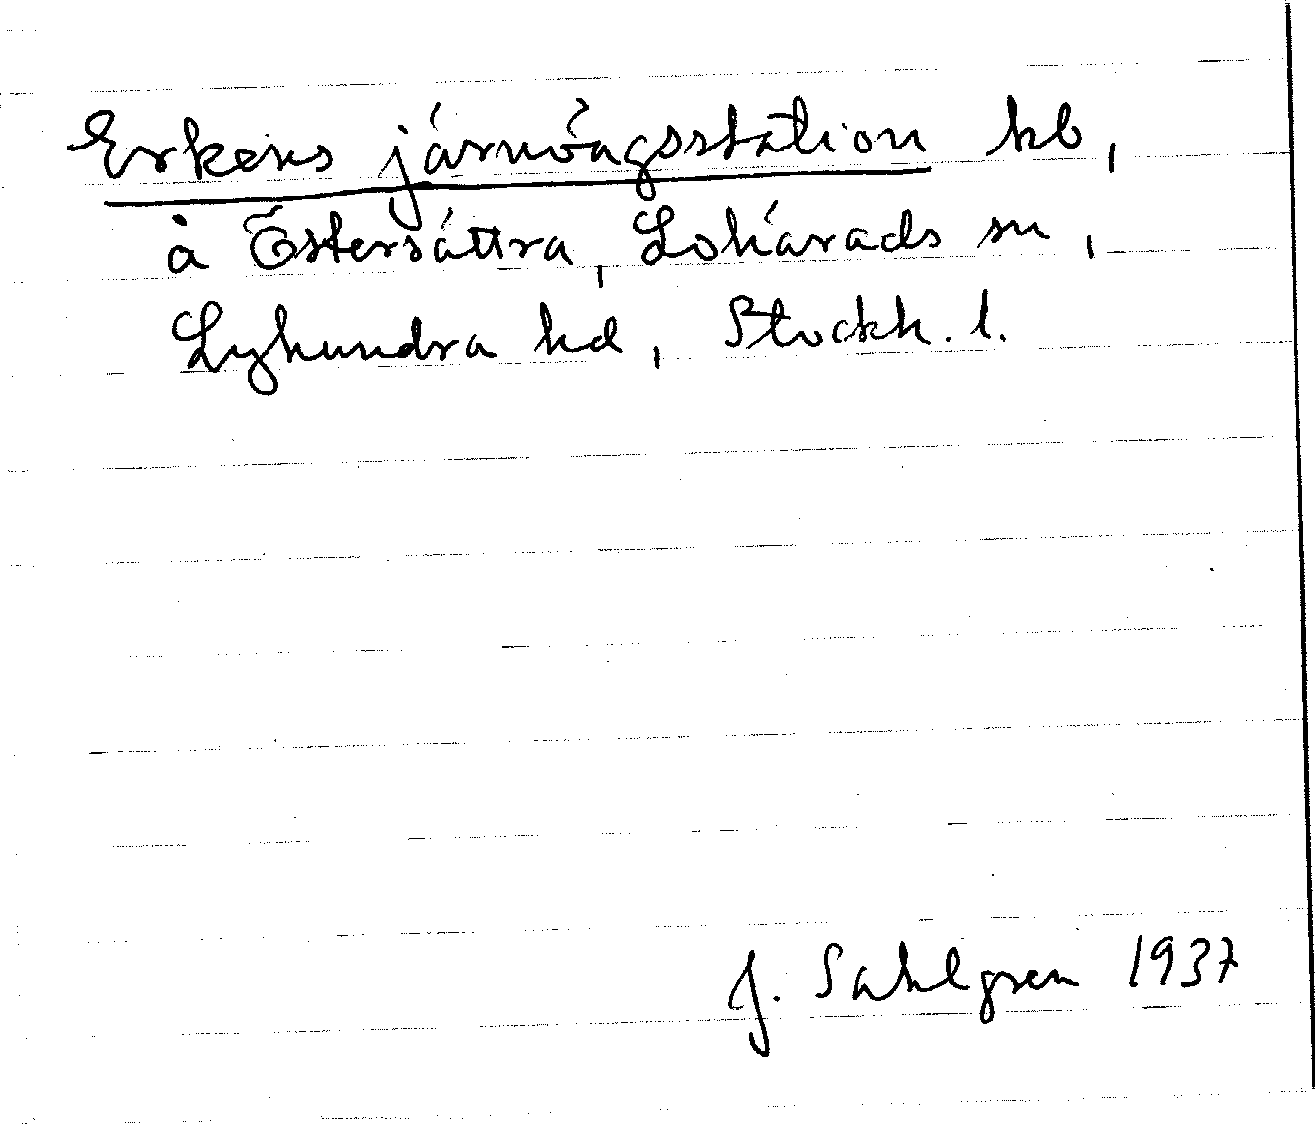 Erkens järnvägsstation hb,
å Östersättra, Lohärads sn,
Lyhundra hd, Stockh. l.
J. Sahlgren 1937